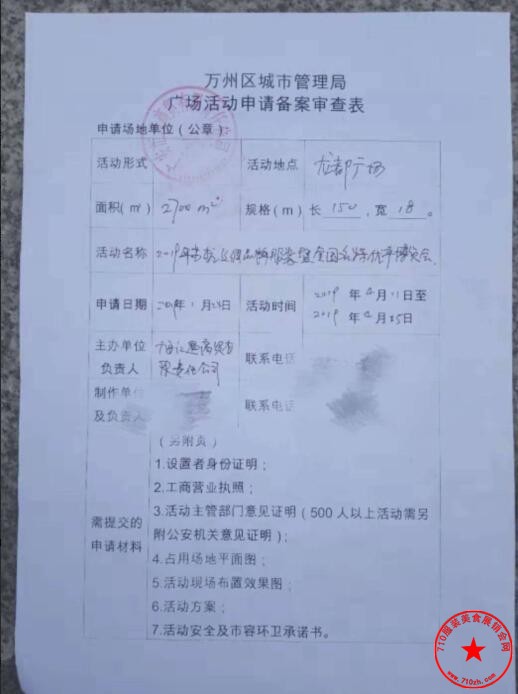 万州区城市管理局
广场活动申请备案审查表
申请场地单位（公章）
活动形式
活动地点 龙都广场
面积(㎡) 2700 m²
规格(m) 长 150 , 宽 18 。
活动名称 2019年
品牌服装暨全国名特优产博览会
申请日期 2019年1月24日
活动时间 2019 年 4 月 11日至
2019 年 4 月 25日
主办单位
负责人
限责任公司
联系电话
制作单位
及负责人
联系电话
（另附页）
需提交的
申请材料
1.设置者身份证明；
2.工商营业执照；
3.活动主管部门意见证明（500 人以上活动需另
附公安机关意见证明）；
4.占用场地平面图；
5.活动现场布置效果图；
6.活动方案；
7.活动安全及市容环卫承诺书。
710服装美食展销会网
www.710zh.com